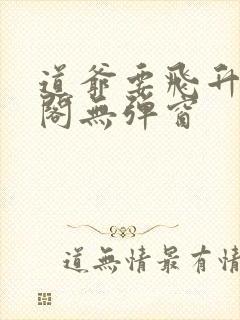 道爺要飛升
閣無彈窗
道無情最有情